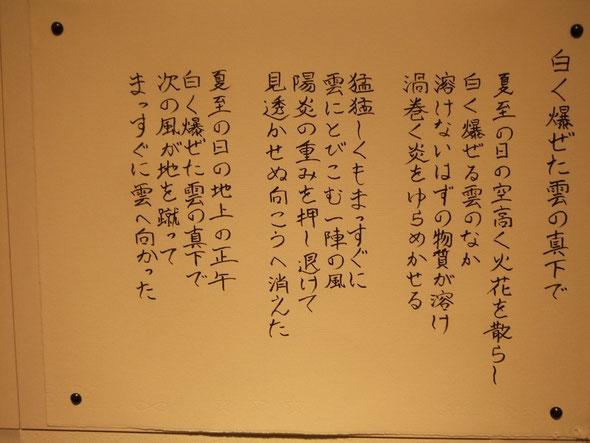 白く爆ぜた雲の真下で
夏至の日の空高く火花を散らし
白く爆ぜる雲のなか
溶けないはずの物質が溶け
渦巻く炎をゆらめかせる
猛猛しくもまっすぐに
雲にとびこむ一陣の風
陽炎の重みを押し退けて
見透かせぬ向こうへ消えた
夏至の日の地上の正午
白く爆ぜた雲の真下で
次の風が地を蹴って
まっすぐに雲へ向かった